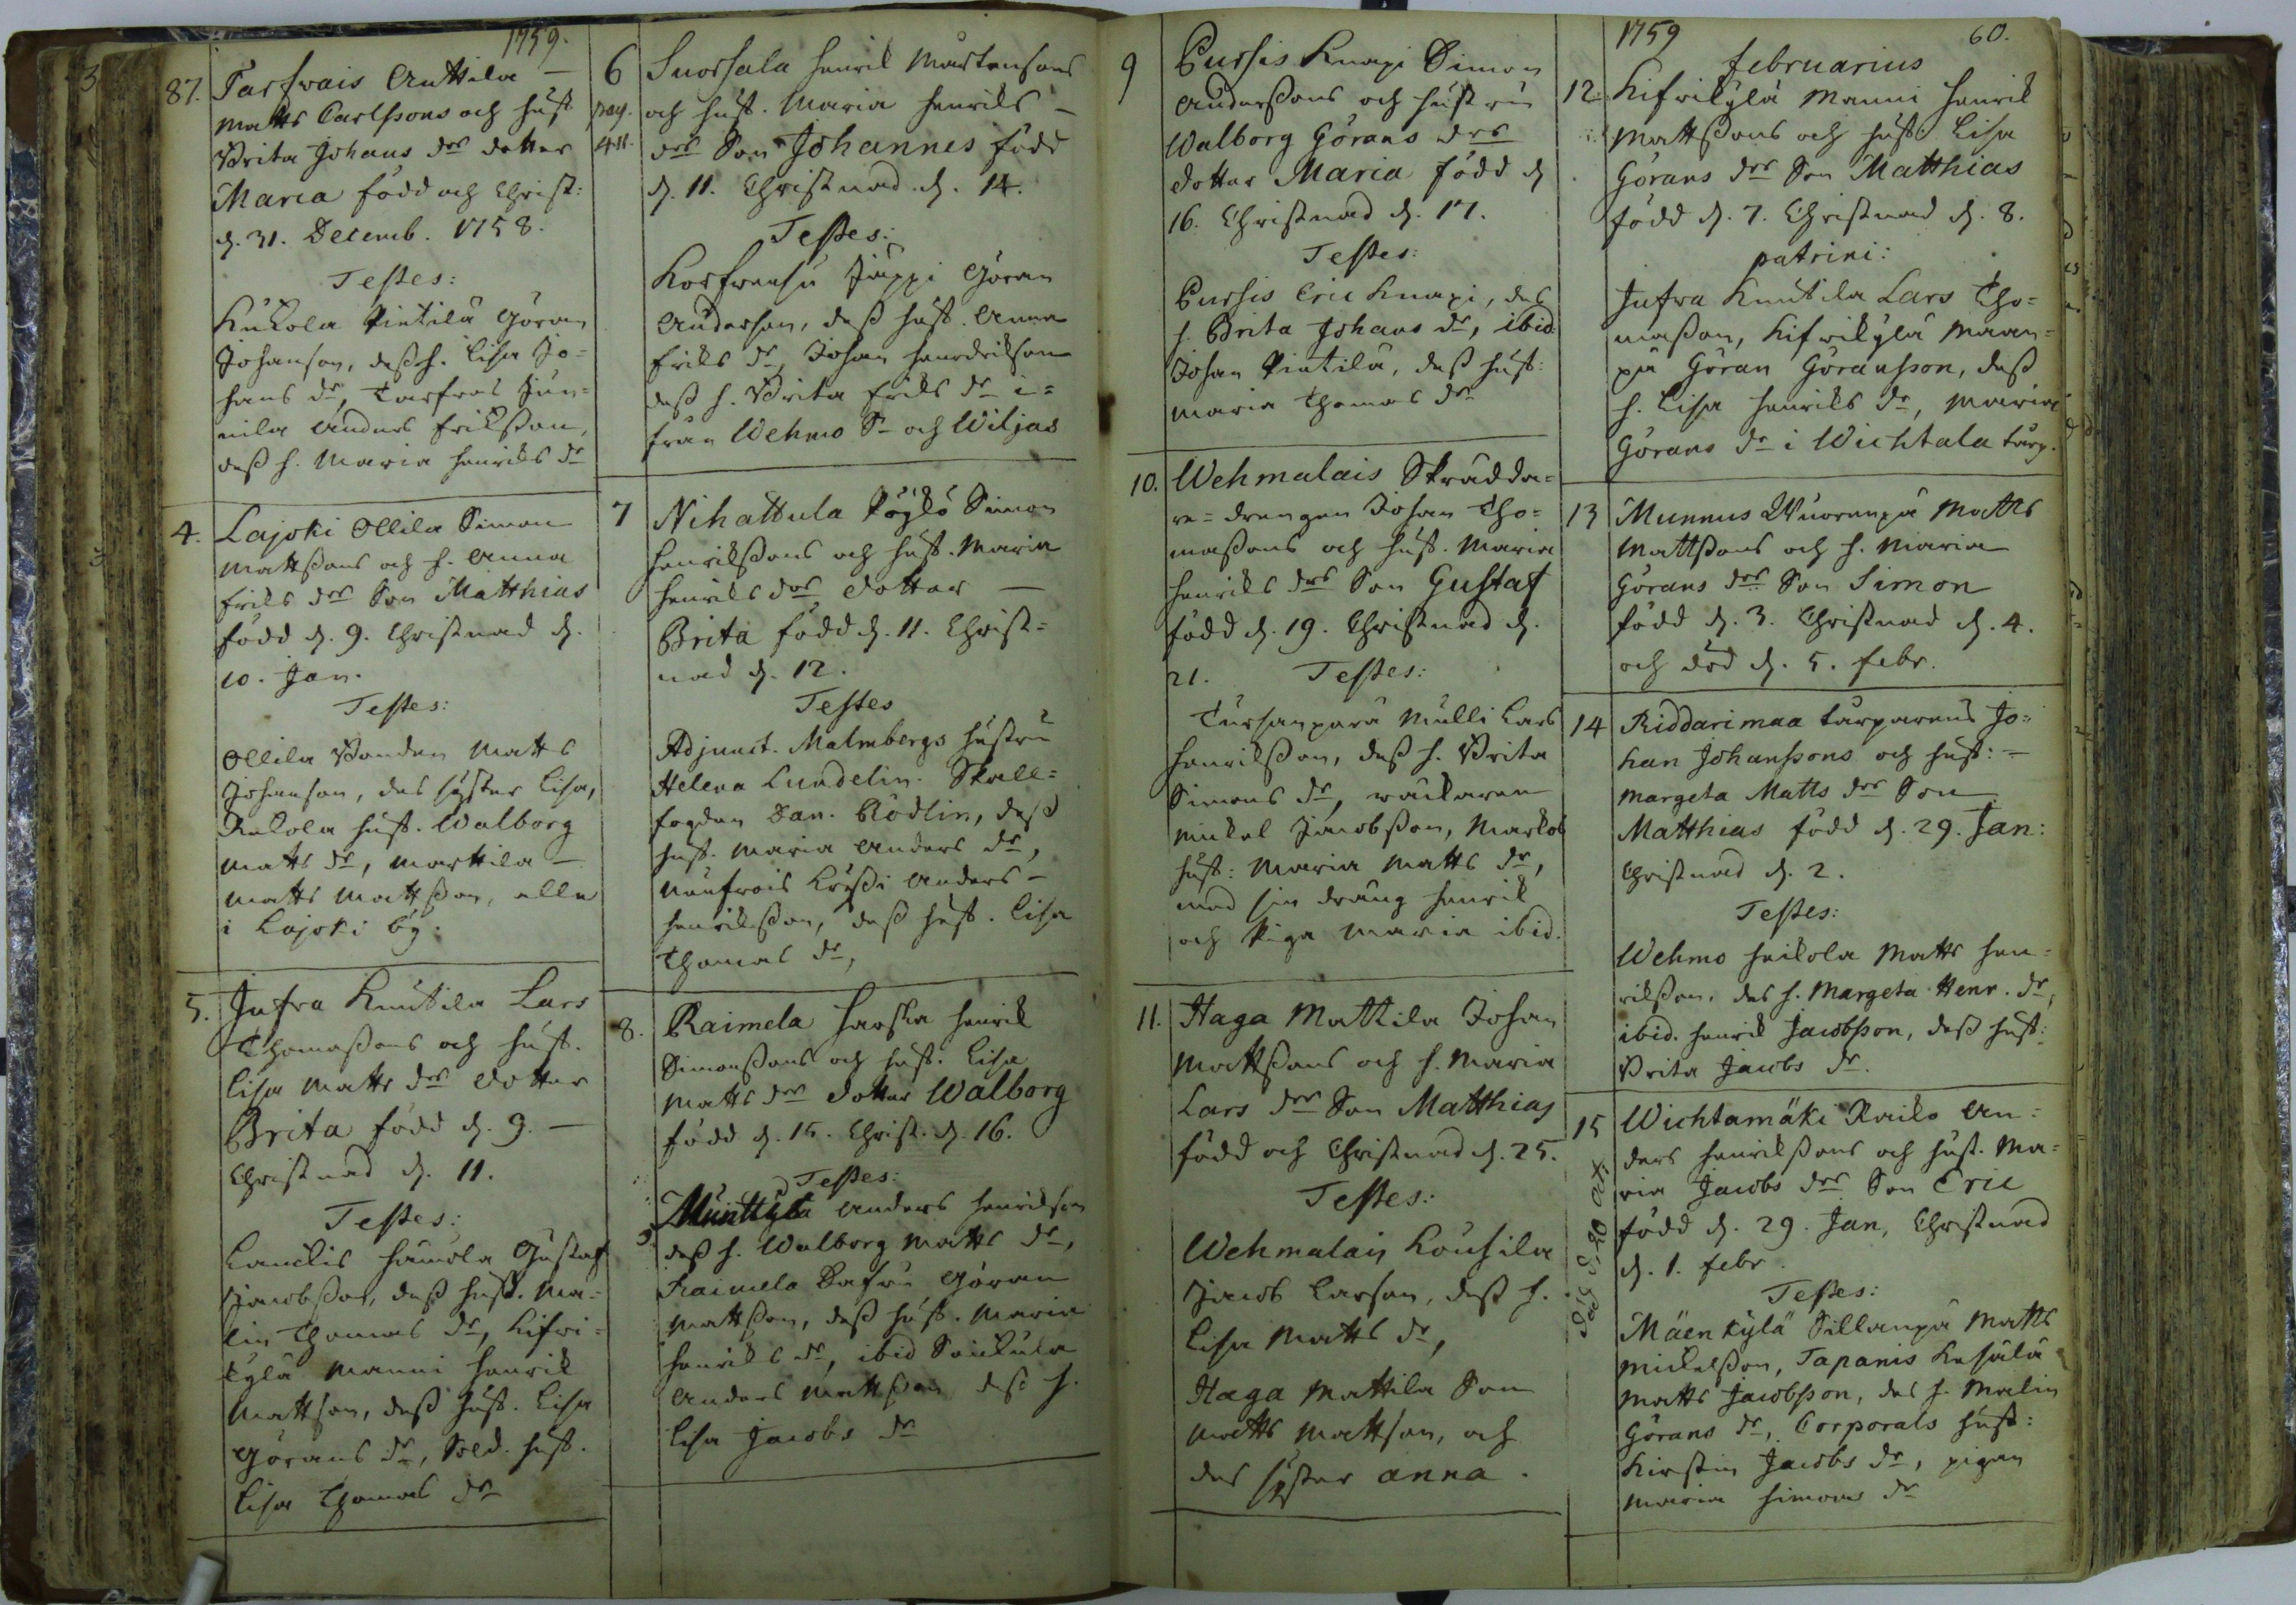 1759.
87. Tarfvais Anttila —
Matts Carlssons och hust.
Brita Johans drs dotter
Maria född och Christ:
d. 31. Decemb. 1758.
Testes:
Kukola Pietilä Göran
Johanson, dess h. Lisa Jo=
hans dr, Tarfvas Jun=
nila Anders Eriksson,
dess h. Maria Henriks dr
4. Lajoki Ollila Simon
Mattssons och h. Anna
Eriks drs Son Matthias
född d. 9. Christnad d.
10. Jan.
Testes:
Ollila Bonden Matts
Johanson, des syster Lisa,
Kukola hust. Walborg
Matts dr, Marttila —
Matts Mattsson, alla
i Lajoki by.
5. Jufra Knutila Lars
Thomassons och hust.
Lisa Matts drs dotter
Brita född d. 9. —
Christnad d. 11.
Testes:
Lanckis Hannola Gustaf
Jacobsson, dess hust. Ma=
lin Thomas dr, Kifvi=
kylä Manni Henrik
Mattson, dess hust. Lisa
Görans dr, Sold. hust.
Lisa Thomas dr
6 Suorsala Henrik Mårtensons
och hust. Maria Henriks —
drs Son Johannes född
d. 11. Christnad d. 14.
Testes:
Korfvensu Juppi Göran
Anderson, dess hust. Anna
Eriks dr, Johan Hendrikson
dess h. Brita Eriks dr i=
från Wehmo Sn och Wiljas
7 Nihattula Pöykö Simon
Henrikssons och hust. Maria
Henriks drs dotter —
Brita född d. 11. Christ=
nad d. 12.
Testes
Adjunct. Malmbergs hustru
Helena Lundelin. Skall=
fogden Dan. Rödlin, dess
hust. Maria Anders dr,
Nunfvois Krysi Anders —
Henriksson, dess hust. Lisa
Thomas dr,
8. Raimela Harska Henrik
Simonssons och hust. Lisa
Matts drs dotter Walborg
född d. 15. Christ. d. 16.
Testes:
Munttila Anders Henrikson
dess h. Walborg Matts dr,
Raimela Göran
Mattsson, dess hust. Maria
Henriks dr, ibid
Anders Mattsson dess h.
Lisa Jacobs dr
9 Pursis Knapi Simon
Anderssons och hustru
Walborg Görans drs
dotter Maria född d
16. Christnad d. 17.
Testes:
Pursis Eric Knapi, des
h. Brita Johans dr, ibid.
Johan Pietilä, dess hust:
Maria Thomas dr
10. Wehmalais Skrädda=
re=drengen Johan Tho=
massons och hust. Maria
Henriks drs Son Gustaf
född d. 19. Christnad d.
21. Testes:
Tursanperä Mulli Lars
Henriksson, dess h. Brita
Simons dr,
Mickel Jacobsson,
hust: Maria Matts dr,
med sin dräng Henrik
och Piga Maria ibid.
11. Haga Mattila Johan
Mattssons och h. Maria
Lars drs Son Matthias
född och Christnad d. 25.
Testes:
Wehmalais Kousila
Jacob Larson, dess h.
Lisa Matts dr,
Haga Mattila Son
Matts Mattson, och
des syster Anna.
1759 60.
Februarius
12. Kifvikylä Manni Henrik
Mattssons och hust. Lisa
Görans drs Son Matthias
född d. 7. Christnad d. 8.
patrini:
Jufra Knutila Lars Tho=
masson, Kifvikylä Maan=
pä Göran Göransson, dess
h. Lisa Henriks dr, Maria
Görans dr i Wichtala torp.
13 Munnus Wuorenpä Matts
Mattssons och h. Maria
Görans drs Son Simon
född d. 3. Christnad d. 4.
och död d. 5. febr.
14 Riddarimaa torparens Jo=
han Johanssons och hust: —
Margeta Matts drs Son
Matthias född d. 29. Jan:
Christnad d. 2.
Testes:
Wehmo Heikola Matts Hen=
riksson, des h. Margeta Henr. dr,
ibid. Henrik Jacobsson, dess hust:
Brita Jacobs dr.
15 Wichtamäki Raiko An=
ders Henrikssons och hust. Ma=
ria Jacobs drs Son Eric
född d. 29. Jan, Christnad
d. 1. febr.
Testes:
Mäenkylä Sillanpä Matts
Mickelsson, Tapanis Kesälä
Matts Jacobsson, des h. Malin
Görans dr, Corporals hust:
Kirstin Jacobs dr, pigan
Maria Simons dr